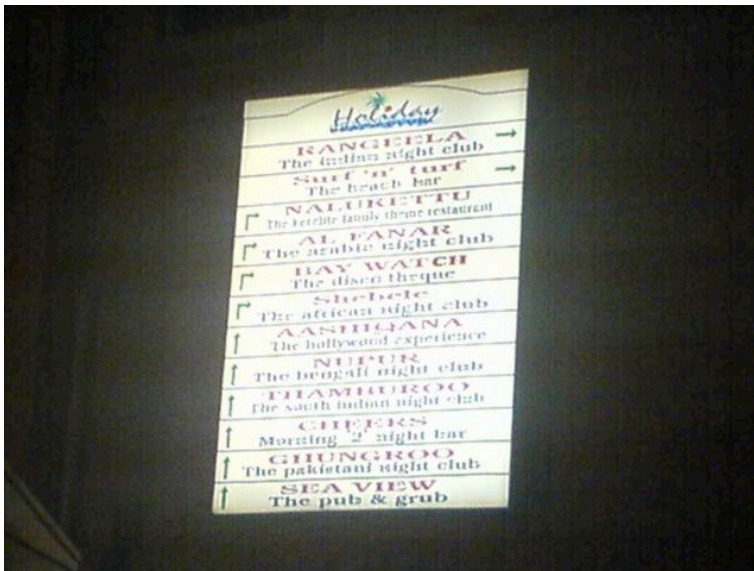 Holiday
RANGEELA
The indian night club
Surf 'n' turf
The beach bar
NALUKETTU
The keralite family theme restaurant
AL FANAR
The arabic night club
BAY WATCH
The disco theque
Shebele
The african night club
AASHIQANA
The bollywood experience
NUPUR
The bengali night club
THAMBUROO
The south indian night club
CHEERS
Morning '2' night bar
GHUNGROO
The pakistani night club
SEA VIEW
The pub & grub